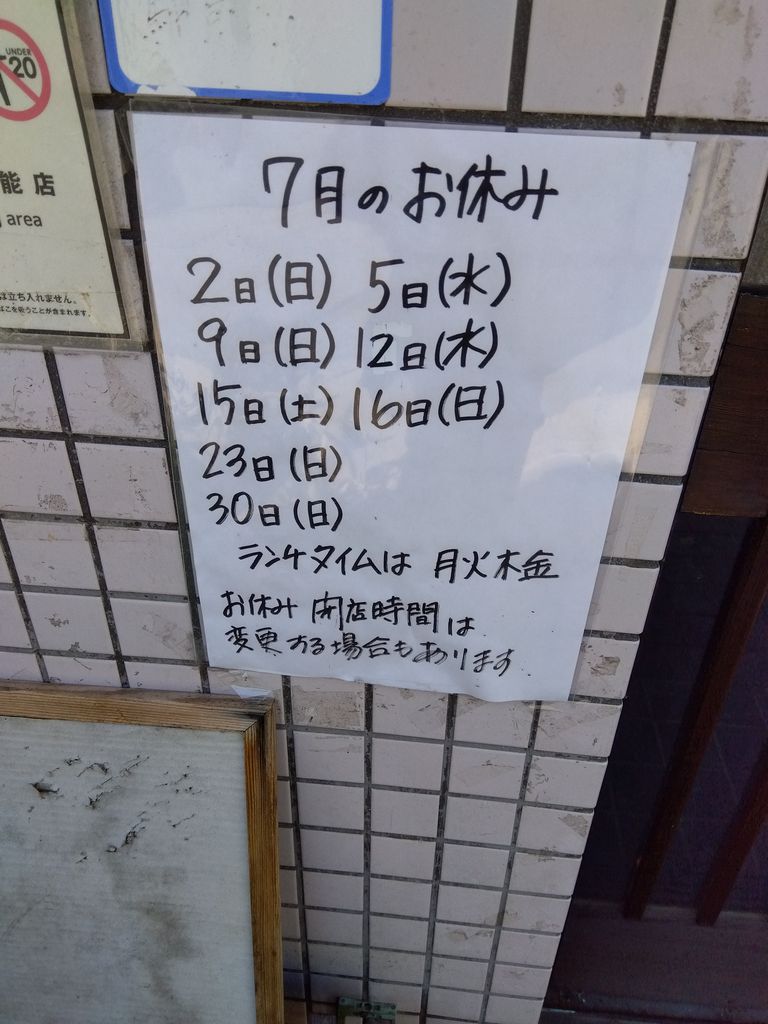 UNDER
20
能店
area
は立ち入れません。
ばこを吸うことが含まれます。
7月のお休み
2日(日) 5日(水)
9日(日) 12日(水)
15日(土) 16日(日)
23日(日)
30日(日)
ランチタイムは 月火木金
お休み 開店時間は
変更する場合もあります